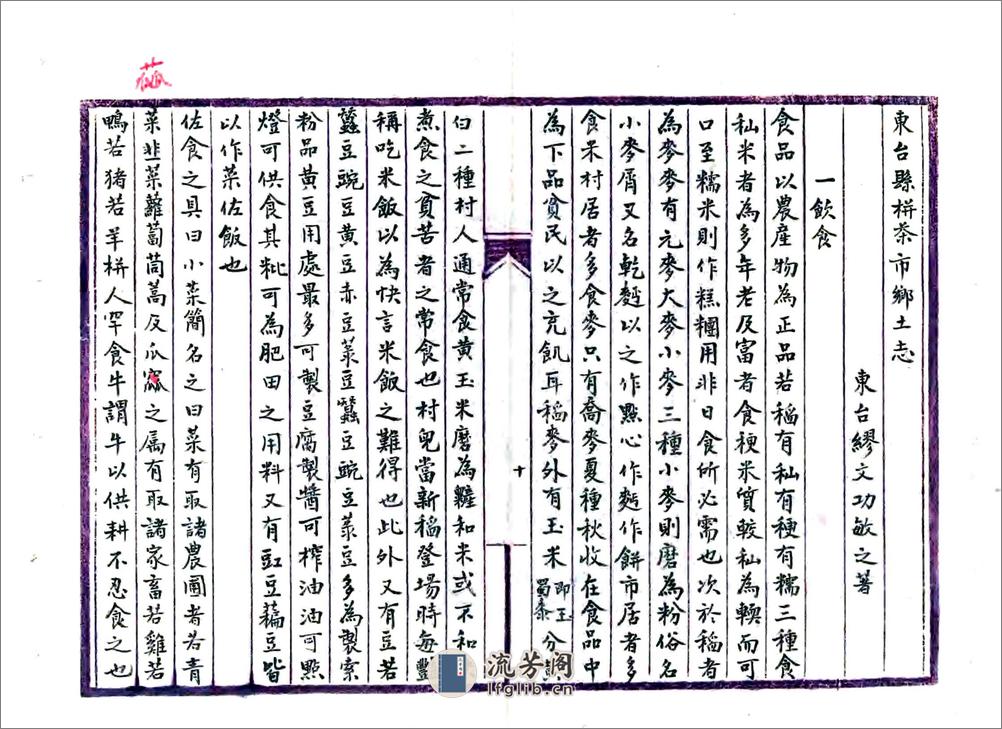 東台縣栟茶市鄉土志
東台繆文功敏之著
一飲食
食品以農產物為正品若稻有秈有稉有糯三種食
秈米者為多年老及富者食稉米質較秈為輭而可
口至糯米則作糕糰用非日食所必需也次於稻者
為麥麥有元麥大麥小麥三種小麥則磨為粉俗名
小麥屑又名乾麵以之作點心作麪作餅市居者多
食米村居者多食麥只有喬麥夏種秋收在食品中
為下品貧民以之充飢耳稻麥外有玉米即玉蜀黍分黃
白二種村人通常食黃玉米磨為糝和米或不和
煮食之貧苦者之常食也村兒當新稻登場時每豔
稱吃米飯以為快言米飯之難得也此外又有豆若
蠶豆豌豆黃豆赤豆菉豆蠶豆豌豆菉豆多為製索
粉品黃豆用處最多可製豆腐製醬可榨油油可點
燈可供食其粃可為肥田之用料又有豇豆藊豆皆
以作菜佐飯也
佐食之具曰小菜簡名之曰菜有取諸農圃者若青
菜韭菜蘿蔔茼蒿及瓜窳之属有取諸家畜若雞若
鴨若猪若羊栟人罕食牛謂牛以供耕不忍食之也
十
蓏
流芳阁
lfglib.cn